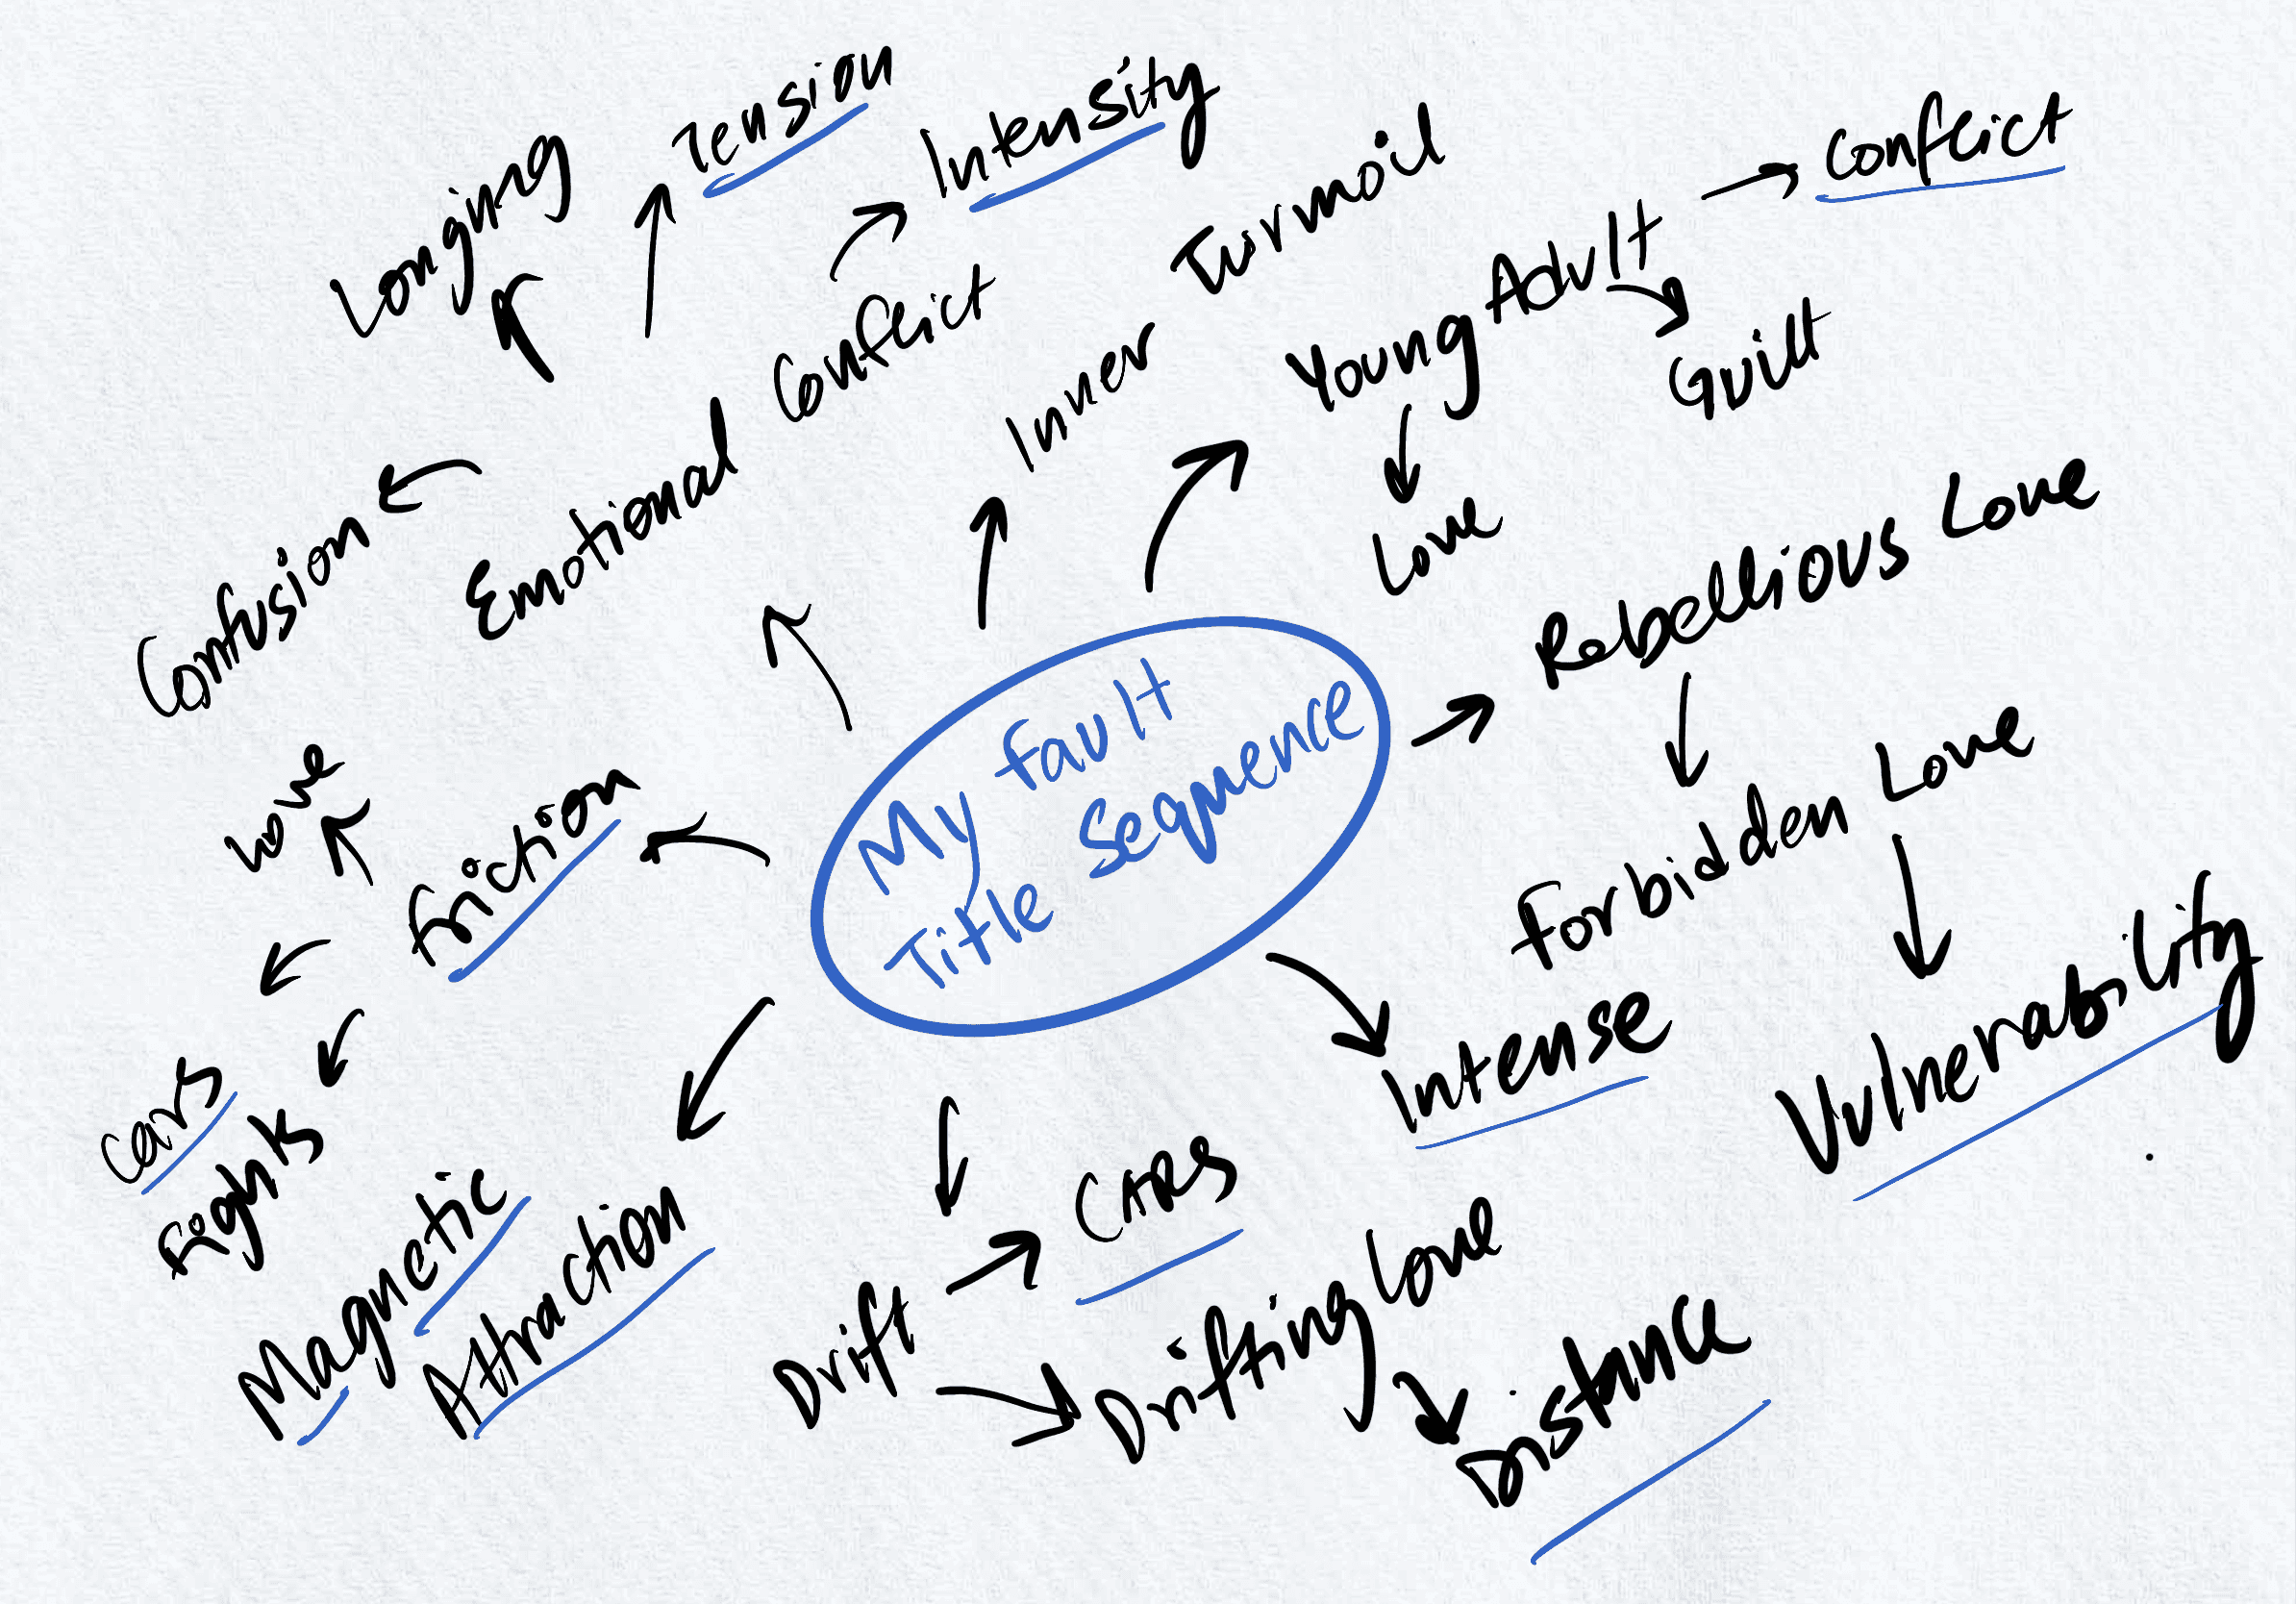 Longing
Tension
Intensity
Conflict
Inner Turmoil
Young Adult
Guilt
Love
Emotional Conflict
Confusion
Rebellious Love
Forbidden Love
Vulnerability
My Fault
Title Sequence
Love
Friction
Cars
Fights
Magnetic
Attraction
Intense
Drift
CARS
Drifting Love
Distance